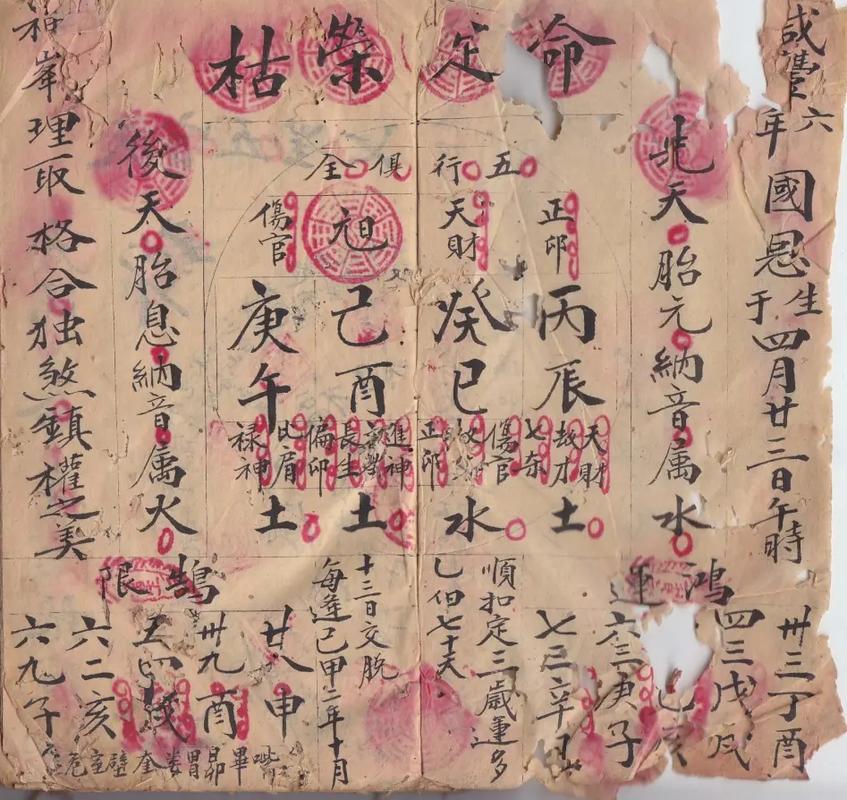 咸豐六年國恩生于四月廿三日午時
命定榮枯
先天胎元納音属水
五行俱全
正印
天財
元旦
傷官
丙辰
癸巳
己酉
庚午
天財
劫才
七杀
傷官
正印
進神
長生
偏印
比肩
禄神
土
水
土
土
後天胎息納音属火
神峯理取格合独煞鎮權之美
鴻運
卅三丁酉
四三戊戌
己亥
六三庚子
七三辛丑
順扣定三歲運多
乚伯七十天
十三日交脫
每逢己甲二年十月
鵲限
廿八申
卅九酉
五四戌
六二亥
六九子
畢昴胃婁奎壁室危